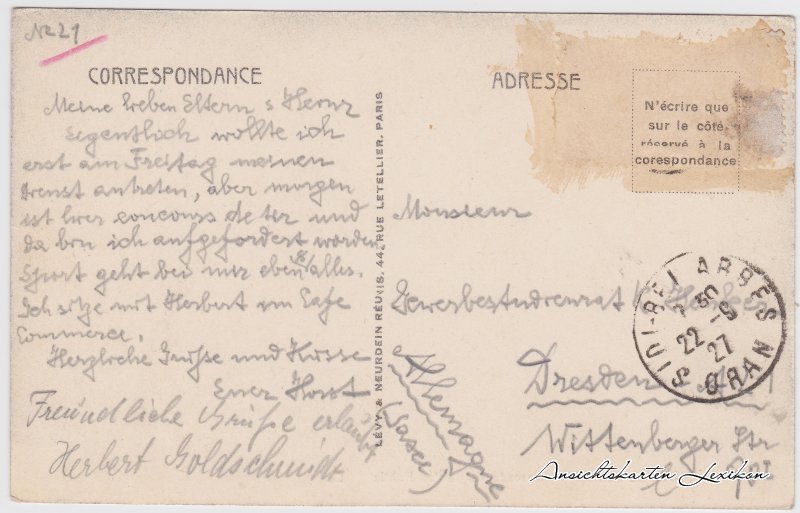 No 21
CORRESPONDANCE
Meine lieben Eltern & Heinz
Eegentlich wollte ich
erst am Freitag meinen
Dienst antreten, aber morgen
ist hier concours de tir und
da bin ich aufgefordert worden
Sport geht bei mir eben über alles.
Ich sitze mit Herbert im Cafe
Commerce.
Herzliche Grüsse und Küsse
Euer Horst
Freundliche Grüße erlaubt
Herbert Goldschmidt
LÉVY & NEURDEIN RÉUNIS, 44, RUE LETELLIER, PARIS
ADRESSE
N'écrire que
sur le côté
réservé à la
corespondance
Monsieur
Gewerbestudienrat
Dresden A. 1
Wittenberger Str
Allemagne
(Saxe)
SIDI-BEL ABBES
ORAN
22 -9
27
Ansichtskarten Lexikon